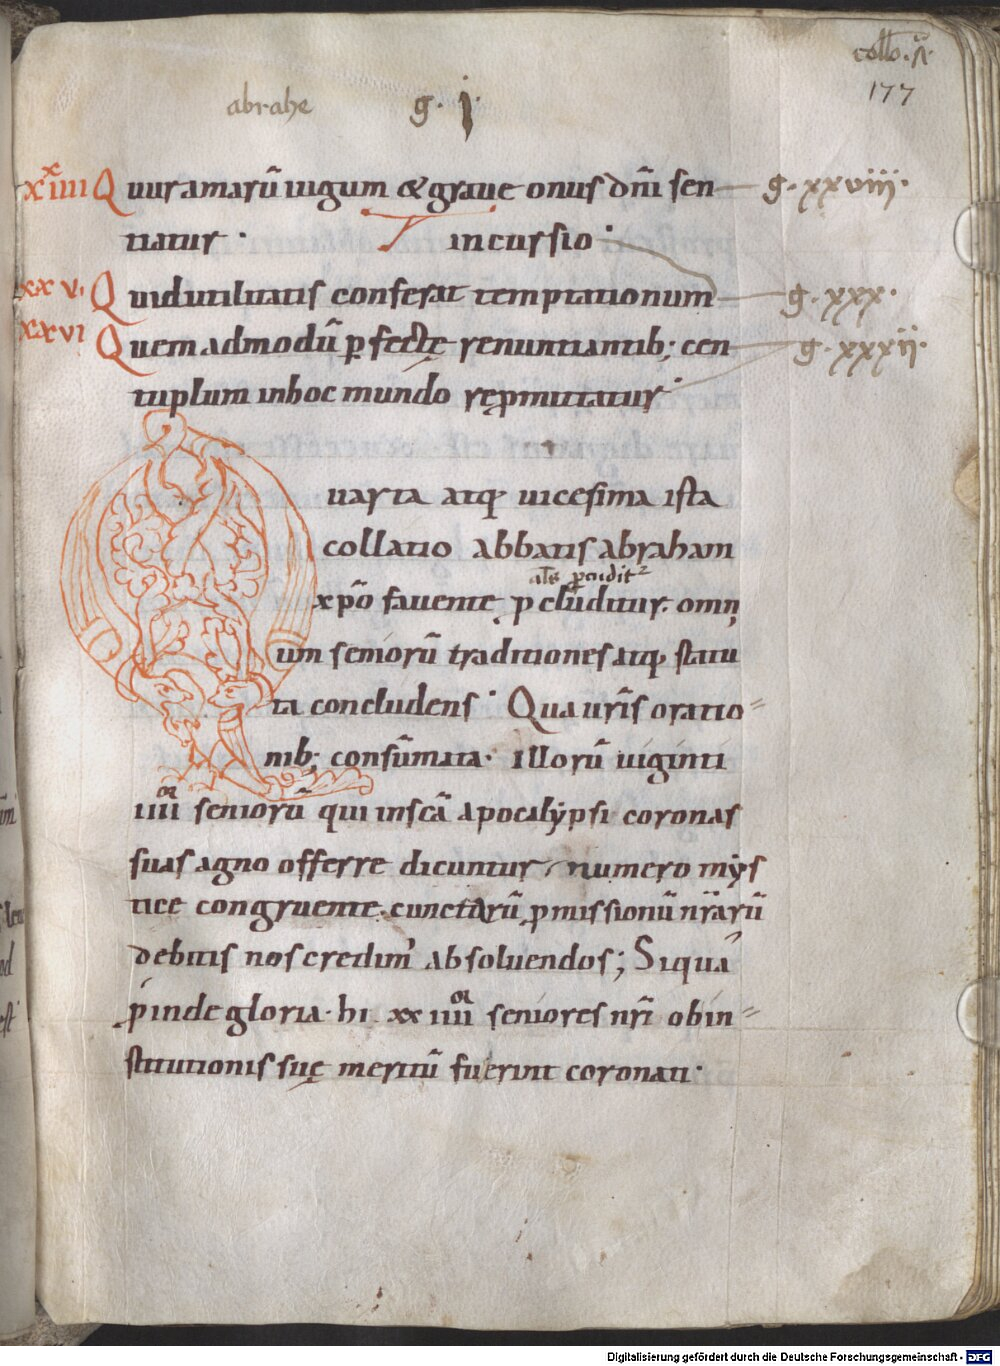 collo. A.
177
abrahe g. i.
xxiiii Q uur amarū iugum & graue onus dn̄i sen g. xxviii.
tiatur. T incursio.
xxv. Q uid utilitatis conferat temptationum g. xxx.
xxvi Q uem admodū pfectę renuntiantib; cen g. xxxii.
tuplum inhoc mundo rępmittatur.
Q uarta atq; uicesima ista
collatio abbatis abraham
al's p̄cuditr
xp̄o fauente p cluditur. omn
ium seniorū traditiones atq; statu
ta concludens. Qua ur̄is oratio
nib; consūmata. Illorū uiginti
iiiior seniorū qui inscā apocalypsi coronas
suas agno offerre dicuntur, numero mys
tice congruente. cunctarū pmissionū nr̄arū
debitis nos credim' absoluendos; Siqua
pinde gloria. hi. xx iiiior seniores nr̄i obin
stitutionis suę meritū fuerint coronati.
Digitalisierung gefördert durch die Deutsche Forschungsgemeinschaft - DFG